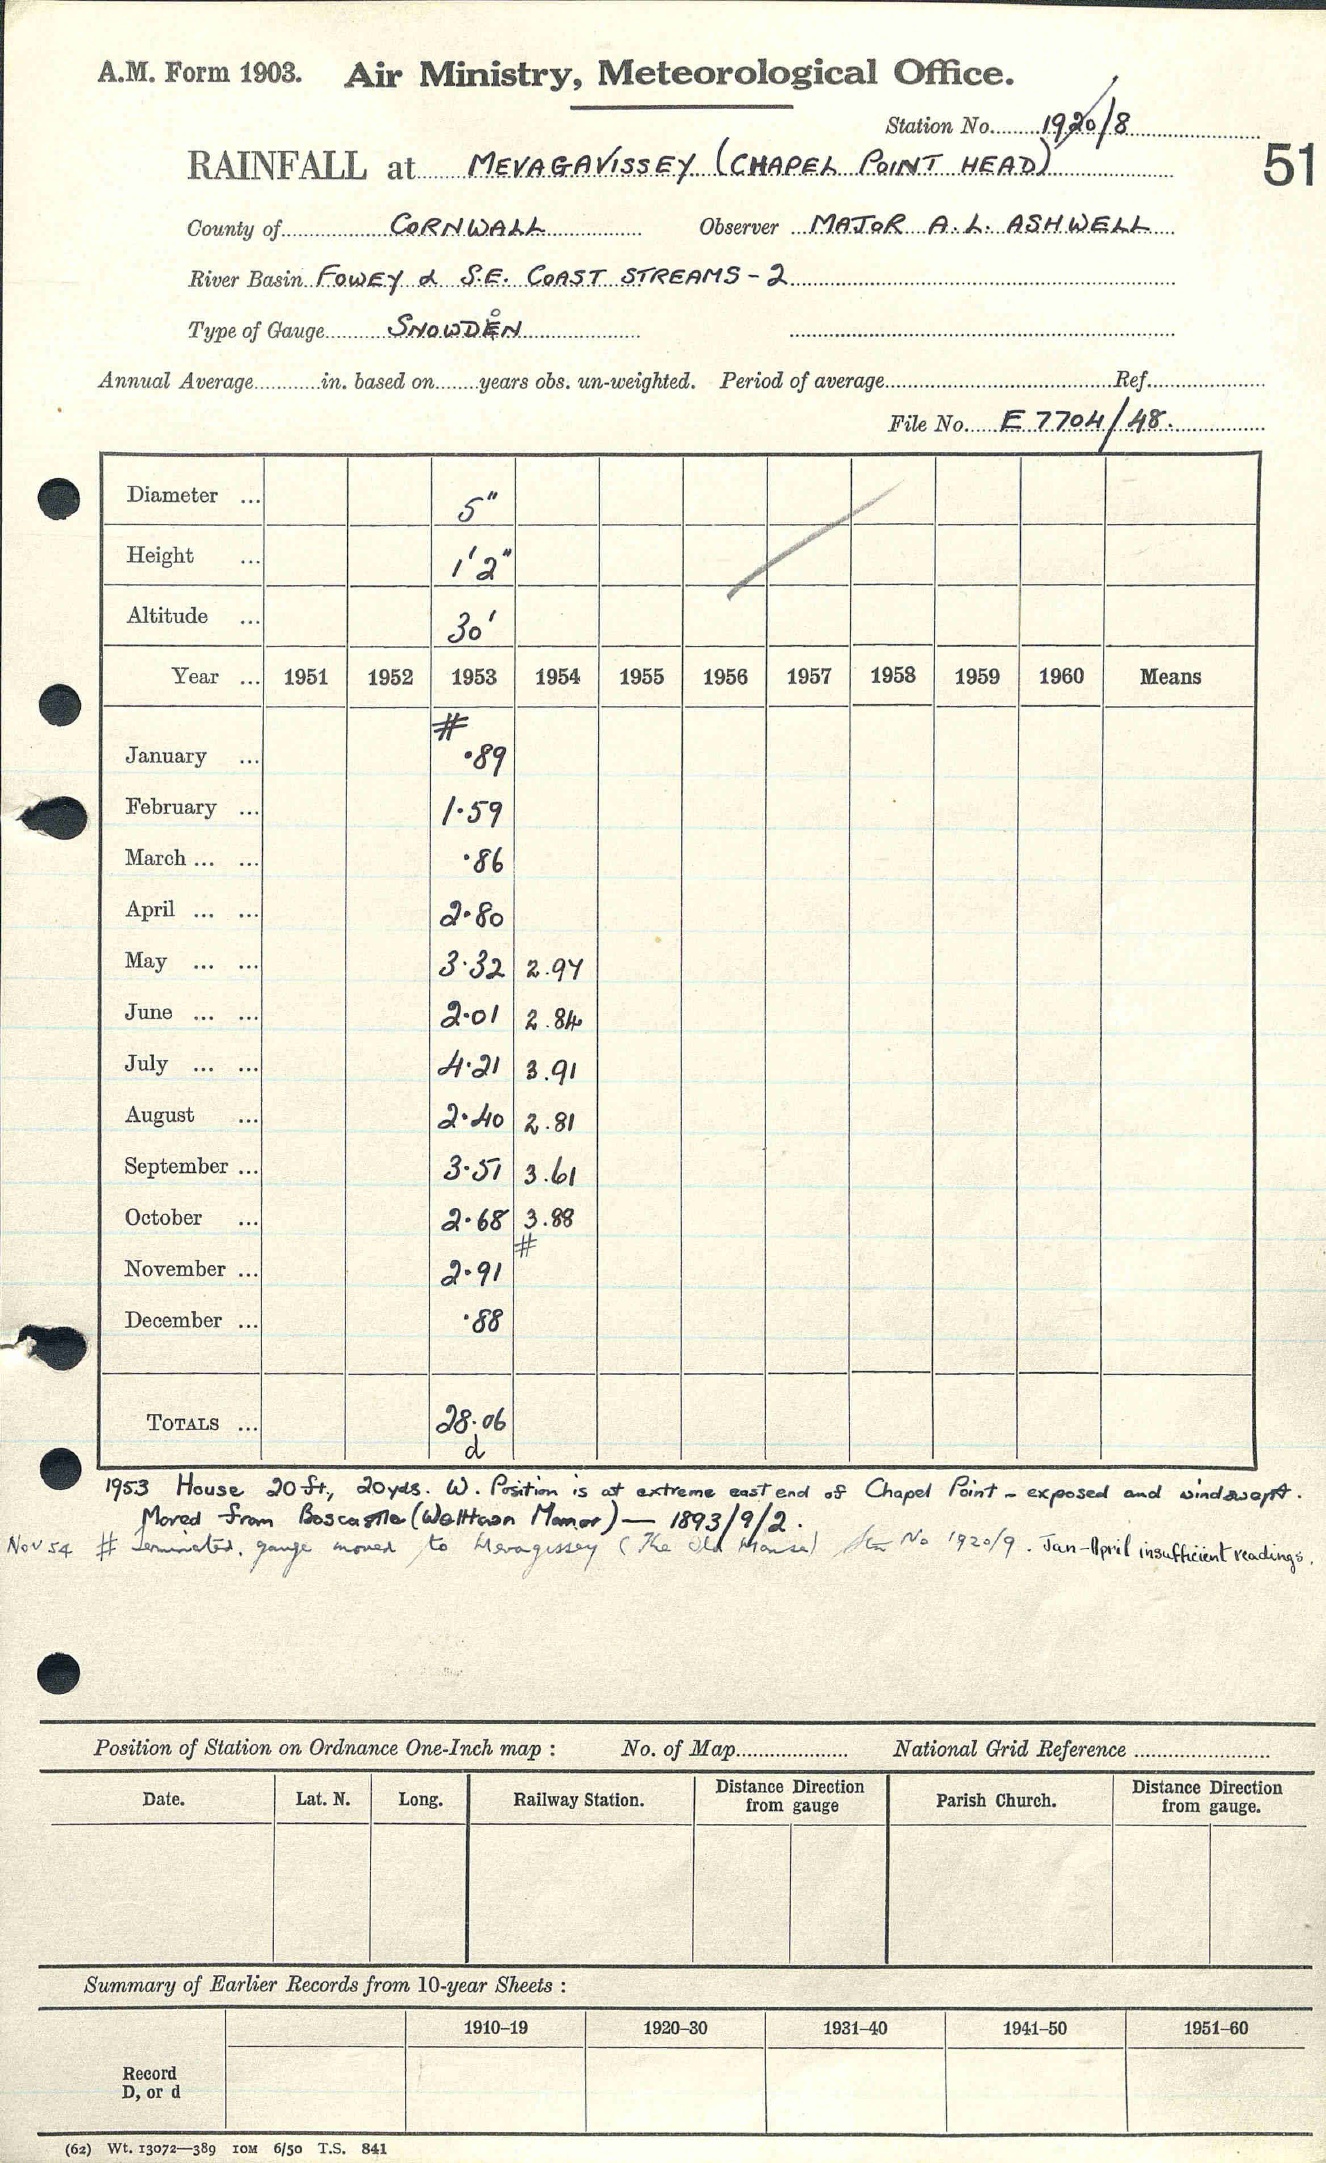 A.M. Form 1903. Air Ministry, Meteorological Office.
Station No. 1920/8
51
RAINFALL at MEVAGAVISSEY (CHAPEL POINT HEAD)
County of CORNWALL Observer MAJOR A.L. ASHWELL
River Basin FOWEY & S.E. COAST STREAMS - 2
Type of Gauge SNOWDON
Annual Average in. based on years obs. un-weighted. Period of average Ref.
File No. E 7704/48.
Diameter ... 5"
Height ... 1'2"
Altitude ... 30'
Year ... 1951 1952 1953 1954 1955 1956 1957 1958 1959 1960 Means
#
January ... ·89
February ... 1·59
March ... ... ·86
April ... ... 2·80
May ... ... 3·32 2.97
June ... ... 2·01 2.84
July ... ... 4·21 3.91
August ... 2·40 2.81
September ... 3·51 3.61
October ... 2·68 3.88
#
November ... 2·91
December ... ·88
TOTALS ... 28·06
d
1953 House 20 ft, 20yds. W. Position is at extreme east end of Chapel Point - exposed and windswept.
Moved from Boscastle (Welltown Manor) — 1893/9/2.
Nov 54 # Terminated, gauge moved to Mevagissey (The Old Manse) Stn No 1920/9. Jan-April insufficient readings.
Position of Station on Ordnance One-Inch map : No. of Map National Grid Reference
Date. Lat. N. Long. Railway Station. Distance Direction from gauge Parish Church. Distance Direction from gauge.
Summary of Earlier Records from 10-year Sheets :
1910–19 1920–30 1931–40 1941–50 1951–60
Record
D, or d
(62) Wt. 13072—389 10M 6/50 T.S. 841